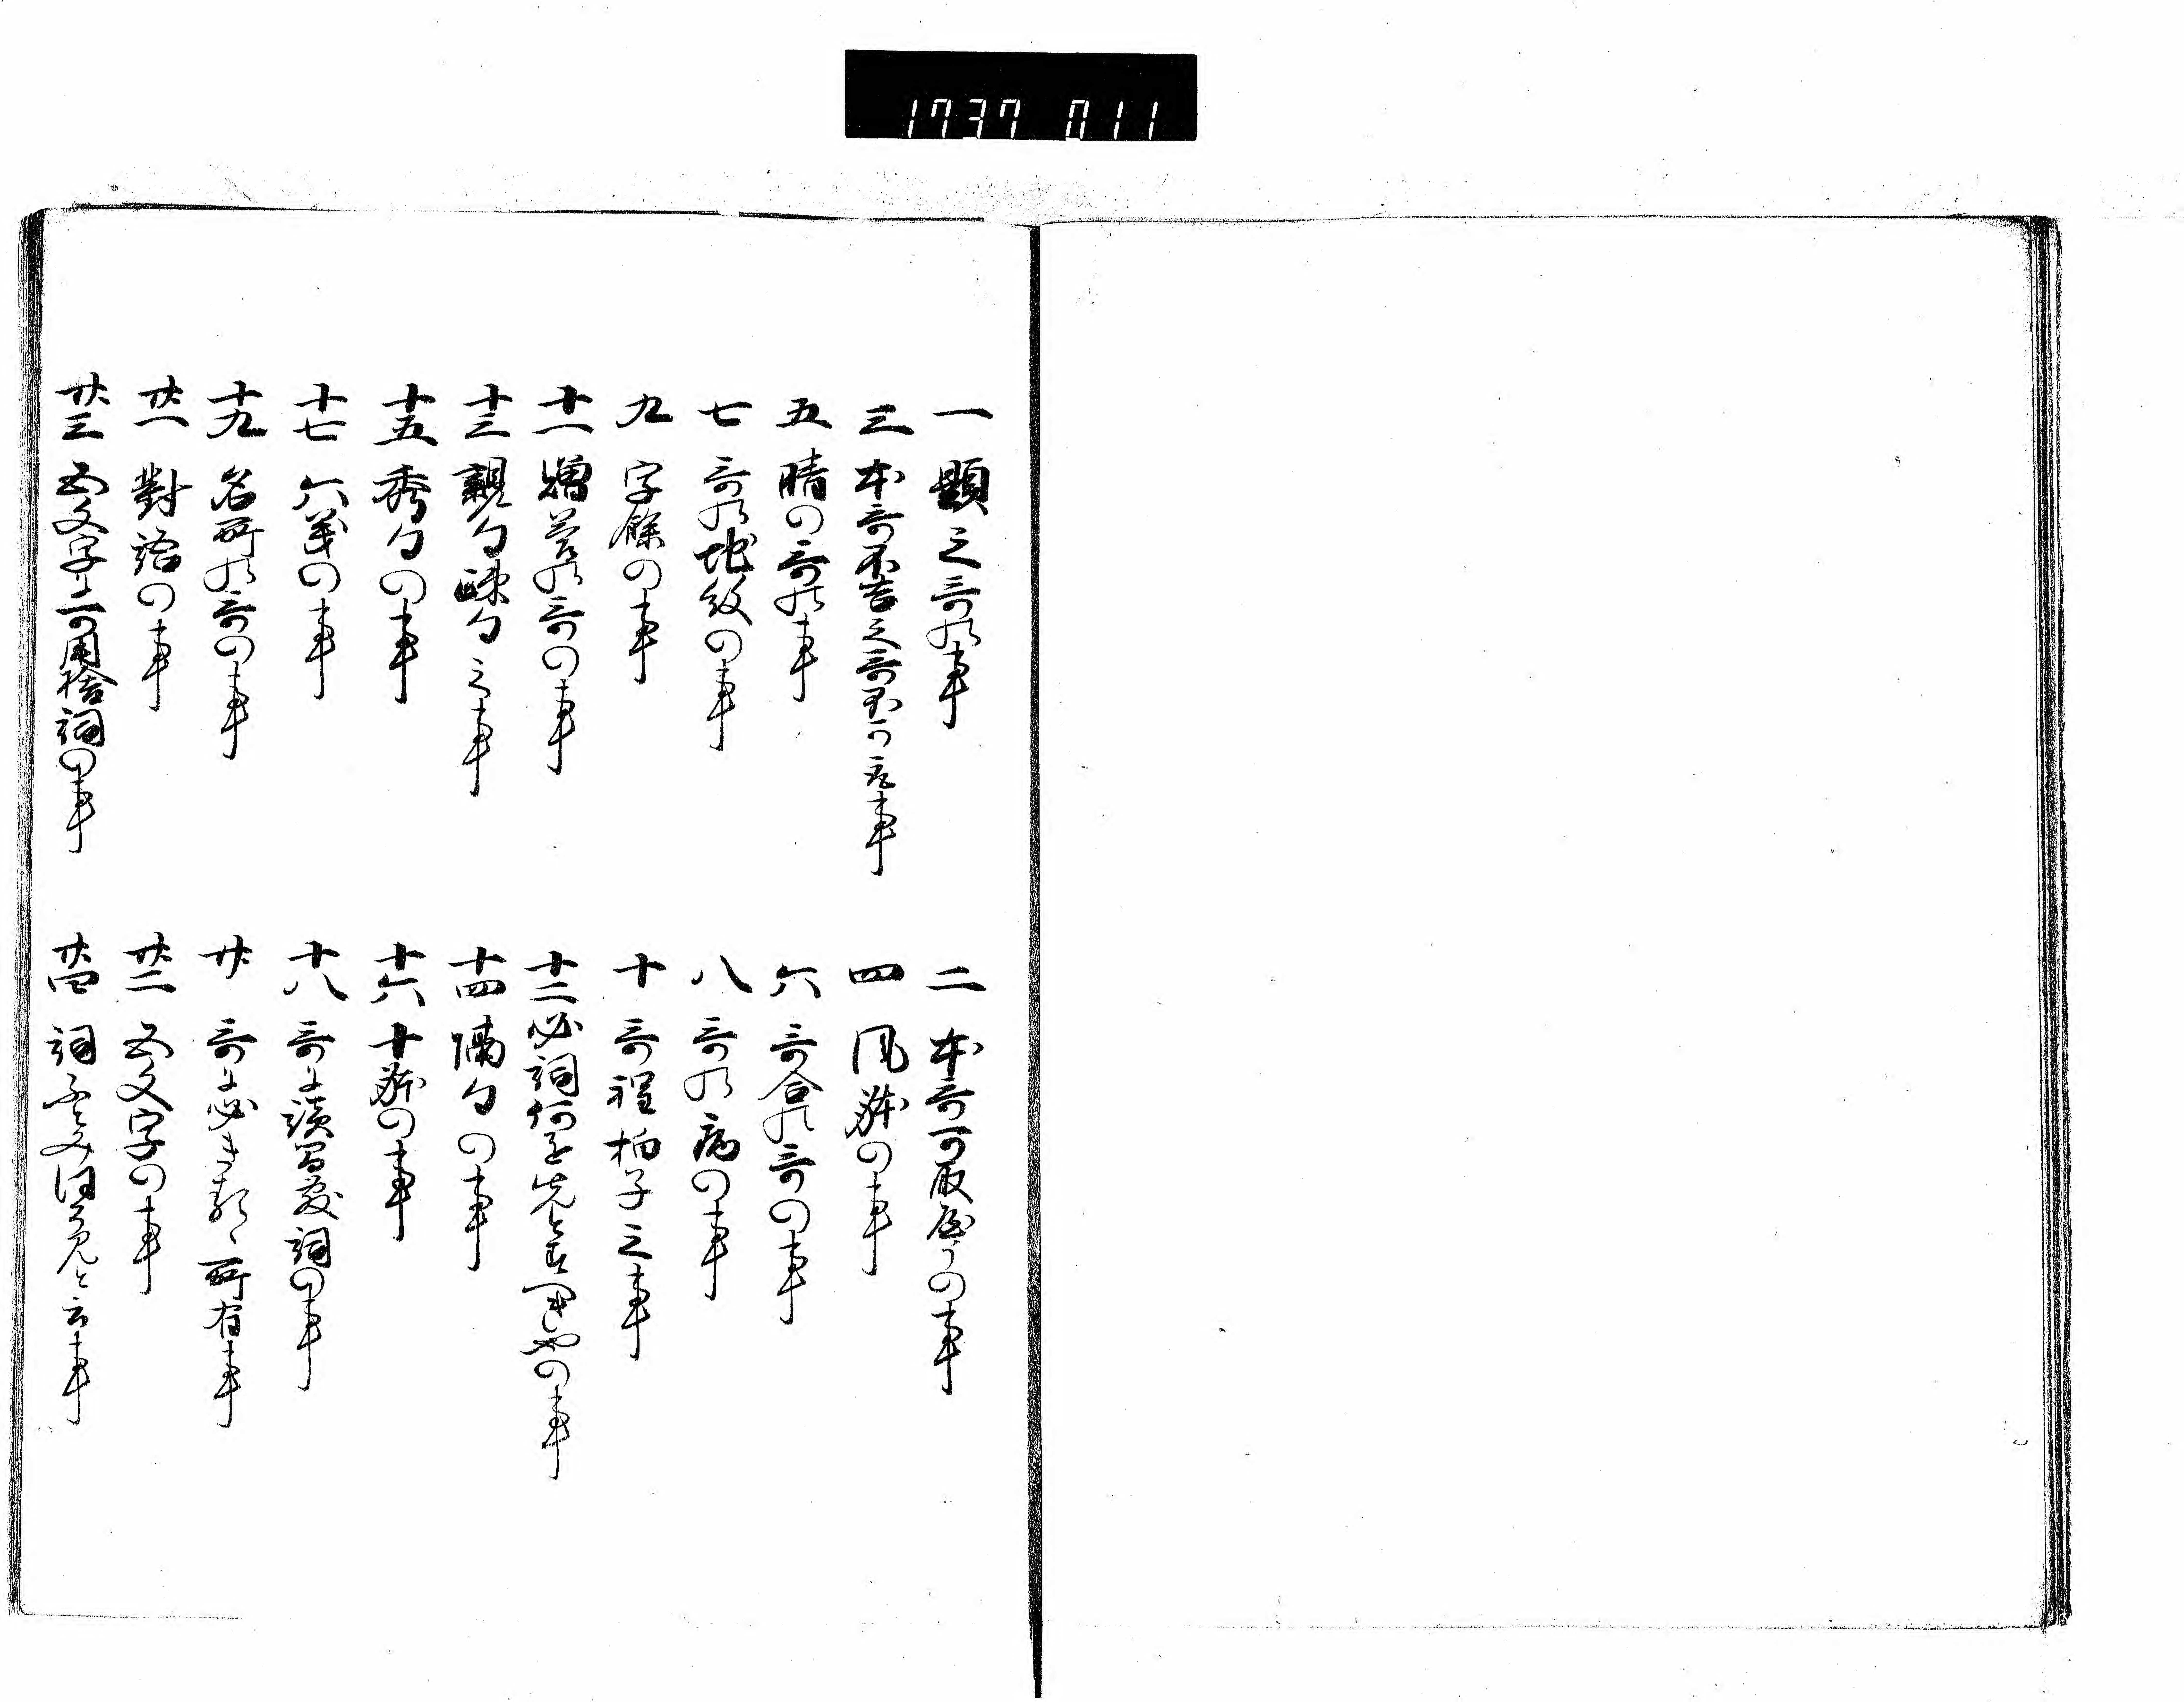 1737 011
一 題之哥の事
二 本哥可取やうの事
三 本哥不吉之哥不可取事
四 風躰の事
五 晴の哥の事
六 哥合の哥の事
七 哥の地紋の事
八 哥の病の事
九 字餘の事
十 哥程拍子之事
十一 贈答の哥の事
十二 必詞何を先と すへきやの事
十三 親句疎句之事
十四 隔句の事
十五 秀句の事
十六 十躰の事
十七 六義の事
十八 哥に讀習藪詞の事
十九 名所の哥の事
廿 哥に必き 所有事
廿一 對語の事
廿二 五文字の事
廿三 五文字に可用捨詞の事
廿四 詞 と云事